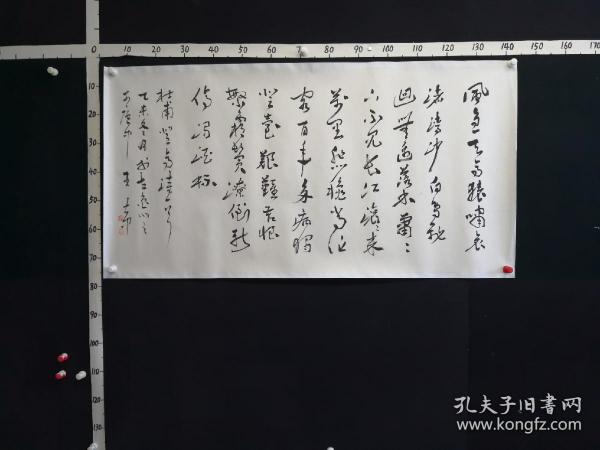 10 0 10 20 30 40 50 60 70 80 90 100 110 120 130 140
風急天高猿嘯哀
渚清沙白鳥飛
迴無邊落木蕭〻
下不尽長江滚〻来
萬里悲秋常作
客百年多病獨
登臺艱難苦恨
繁霜鬓潦倒新
停濁酒杯
杜甫登高詩一首
乙未冬月於古
王
10
20
30
40
50
60
70
80
90
100
110
120
130
孔夫子旧书网
www.kongfz.com